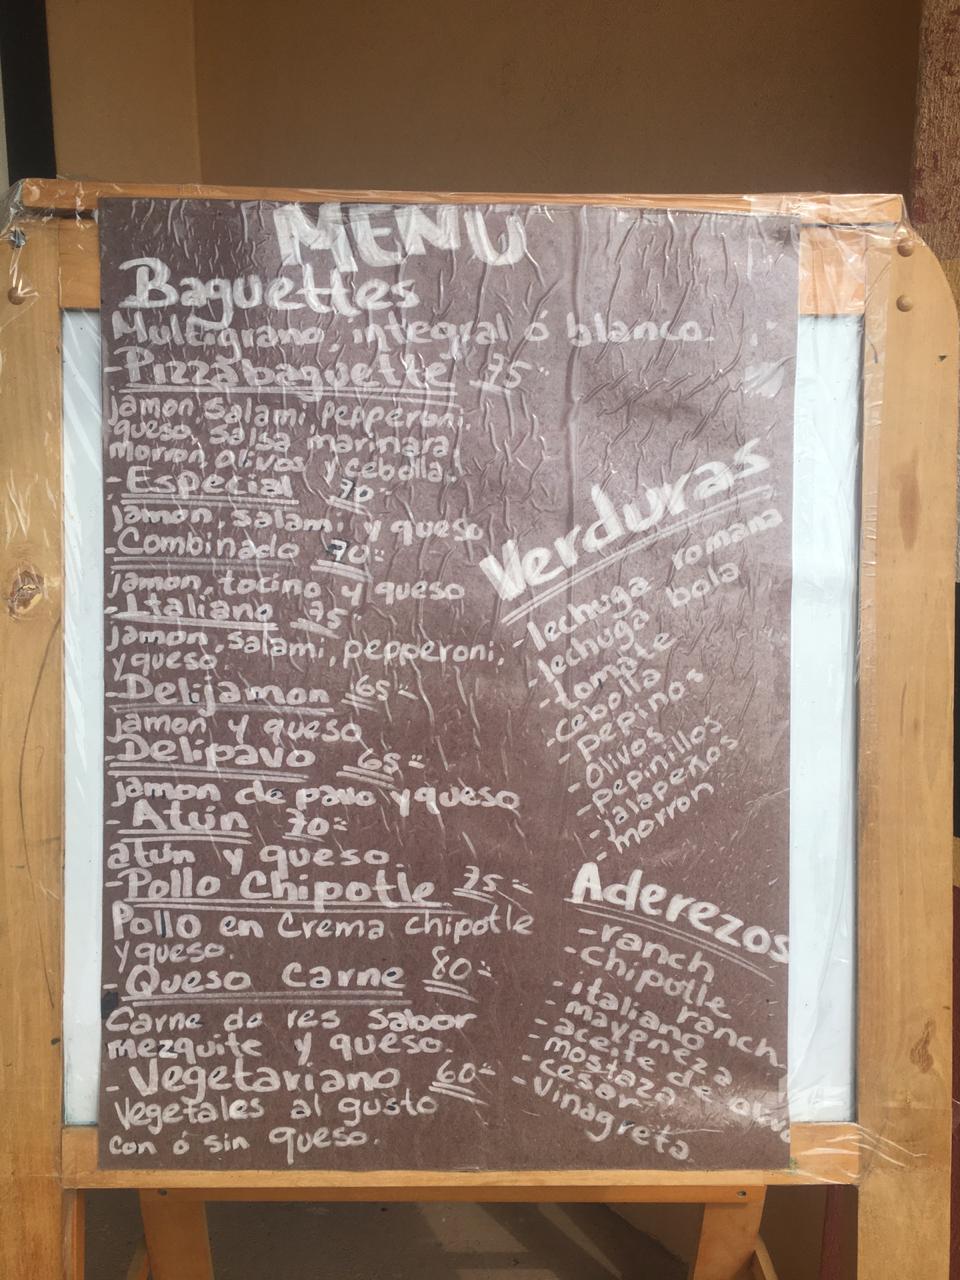 MENÚ
Baguettes
Multigrano, integral ó blanco.
- Pizzabaguette 75.-
jamon, salami, pepperoni,
queso, salsa marinara,
morron, olivos y cebolla.
- Especial 70.-
jamon, salami y queso
- Combinado 70.-
jamon, tocino y queso
- Italiano 75.-
jamon, salami, pepperoni,
y queso.
- Delijamon 65.-
jamon y queso
Delipavo 65.-
jamon de pavo y queso
- Atún 70.-
atún y queso.
- Pollo Chipotle 75.-
Pollo en Crema chipotle
y queso.
- Queso Carne 80.-
Carne de res sabor
mezquite y queso.
- Vegetariano 60.-
Vegetales al gusto
con ó sin queso.
Verduras
- lechuga romana
- lechuga bola
- tomate
- Cebolla
- pepinos
- Olivos
- pepinillos
- jalapeños
- morron
Aderezos
- ranch
- Chipotle ranch
- italiano
- mayoneza
- aceite de olivo
- mostaza
- cesar
- Vinagreta